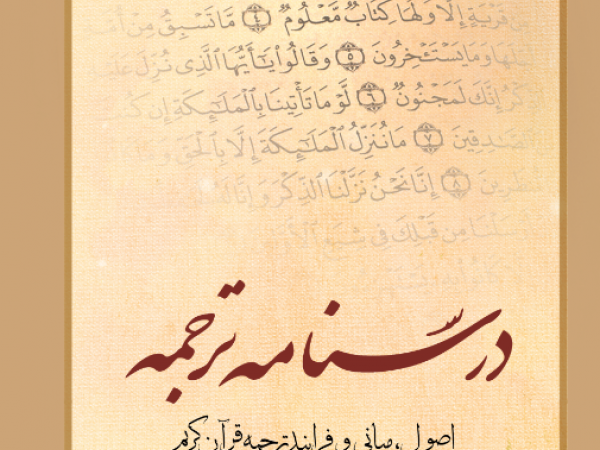 قَرْيَةٍ إِلَّا وَلَهَا كِتَابٌ مَّعْلُومٌ ٤ مَّا تَسْبِقُ مِنْ
وَمَا يَسْتَـْٔخِرُونَ ٥ وَقَالُوا۟ يَـٰٓأَيُّهَا ٱلَّذِى نُزِّلَ
إِنَّكَ لَمَجْنُونٌ ٦ لَّوْ مَا تَأْتِينَا بِٱلْمَلَـٰٓئِكَةِ إِن
صَّـٰدِقِينَ ٧ مَا نُنَزِّلُ ٱلْمَلَـٰٓئِكَةَ إِلَّا بِٱلْحَقِّ
ظَرِينَ ٨ إِنَّا نَحْنُ نَزَّلْنَا ٱلذِّكْرَ وَإِنَّا
سَلْنَا مِن قَبْلِكَ فِى شِيَعِ
درسنامه ترجمه
اصول، مبانی و فرایند ترجمه قرآن کریم